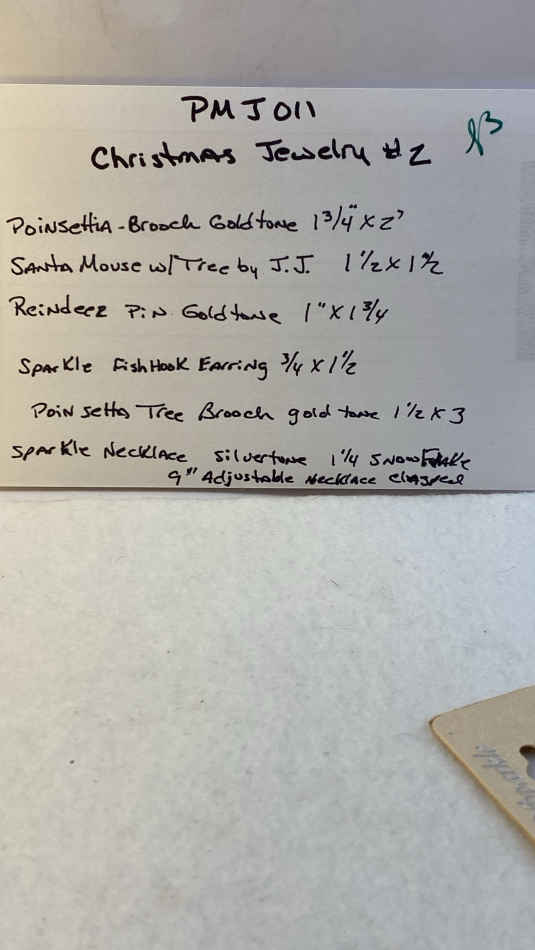 PMJ011
Christmas Jewelry #2
Poinsettia-Brooch Goldtone 1 3/4" x 2"
Santa Mouse w/Tree by J.J. 1 1/2 x 1 1/2
Reindeer Pin Goldtone 1" x 1 3/4
Sparkle FishHook Earring 3/4 x 1 1/2
Poinsetta Tree Brooch gold tone 1 1/2 x 3
Sparkle Necklace Silvertone 1 1/4 Snowflake
9" Adjustable Necklace clasped